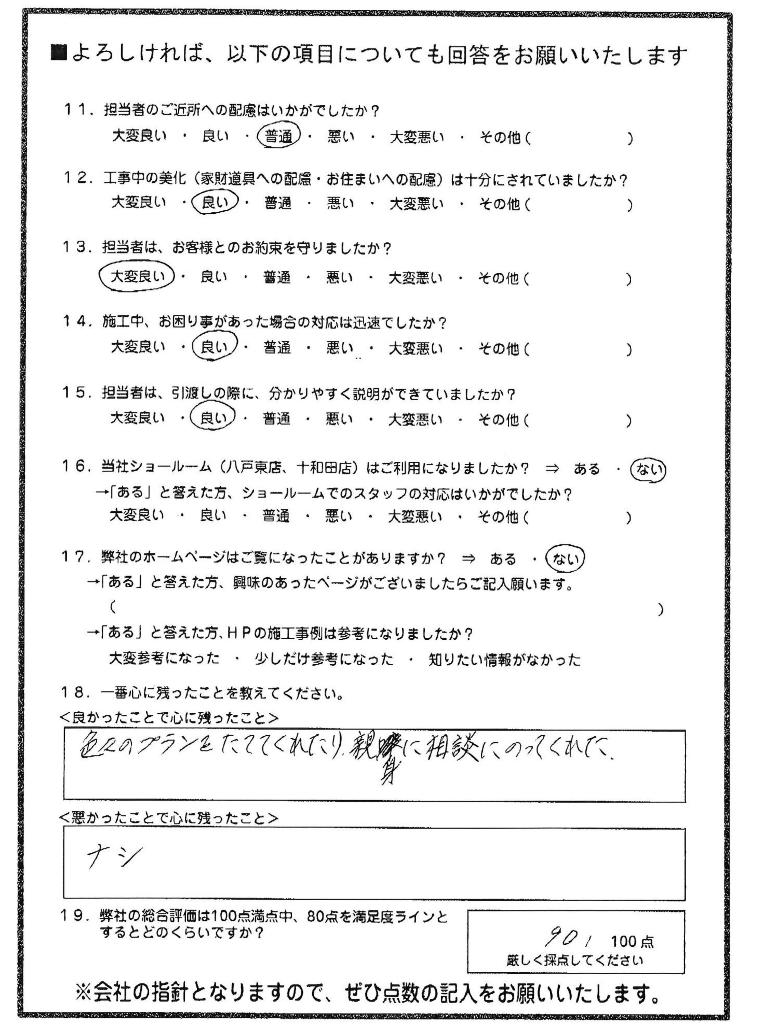 ■よろしければ、以下の項目についても回答をお願いいたします
11. 担当者のご近所への配慮はいかがでしたか？
大変良い ・ 良い ・ 普通 ・ 悪い ・ 大変悪い ・ その他（ ）
12. 工事中の美化（家財道具への配慮・お住まいへの配慮）は十分にされていましたか？
大変良い ・ 良い ・ 普通 ・ 悪い ・ 大変悪い ・ その他（ ）
13. 担当者は、お客様とのお約束を守りましたか？
大変良い ・ 良い ・ 普通 ・ 悪い ・ 大変悪い ・ その他（ ）
14. 施工中、お困り事があった場合の対応は迅速でしたか？
大変良い ・ 良い ・ 普通 ・ 悪い ・ 大変悪い ・ その他（ ）
15. 担当者は、引渡しの際に、分かりやすく説明ができていましたか？
大変良い ・ 良い ・ 普通 ・ 悪い ・ 大変悪い ・ その他（ ）
16. 当社ショールーム（八戸東店、十和田店）はご利用になりましたか？ ⇒ ある ・ ない
→「ある」と答えた方、ショールームでのスタッフの対応はいかがでしたか？
大変良い ・ 良い ・ 普通 ・ 悪い ・ 大変悪い ・ その他（ ）
17. 弊社のホームページはご覧になったことがありますか？ ⇒ ある ・ ない
→「ある」と答えた方、興味のあったページがございましたらご記入願います。
（ ）
→「ある」と答えた方、HPの施工事例は参考になりましたか？
大変参考になった ・ 少しだけ参考になった ・ 知りたい情報がなかった
18. 一番心に残ったことを教えてください。
＜良かったことで心に残ったこと＞
色々のプランをたててくれたり、親身に相談にのってくれた、
＜悪かったことで心に残ったこと＞
ナシ
19. 弊社の総合評価は100点満点中、80点を満足度ラインと
するとどのくらいですか？
90 / 100点
厳しく採点してください
※会社の指針となりますので、ぜひ点数の記入をお願いいたします。